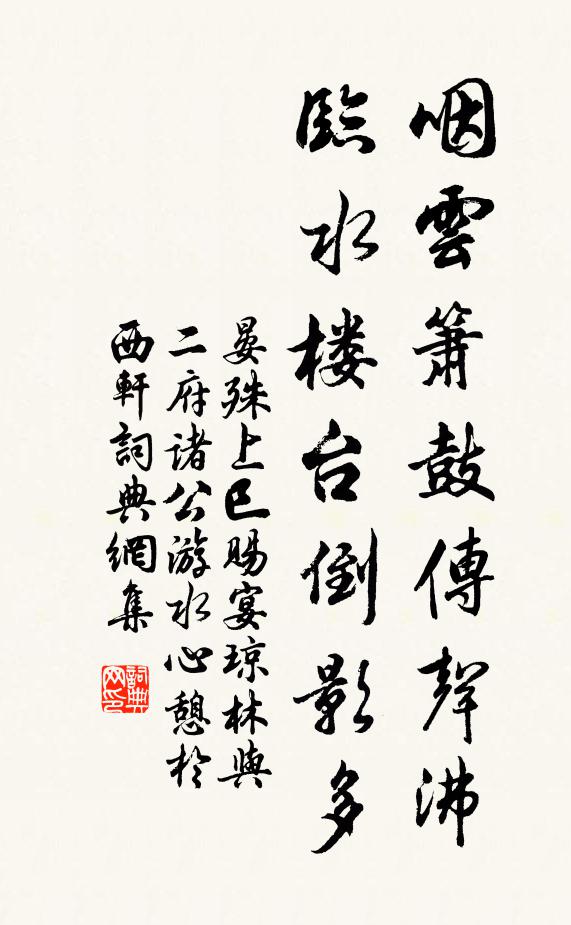 咽雲簫鼓傳聲沸
臨水楼台倒影多
晏殊上巳賜宴琼林與
二府诸公游水心憩於
西軒詞典網集
詞典网印